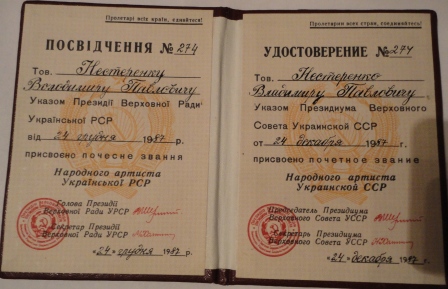 Пролетарі всіх країн, єднайтеся!
ПОСВІДЧЕННЯ № 274
Тов. Нестеренку
Володимиру Павловичу
Указом Президії Верховної Ради
Української РСР
від 24 грудня 1987 р.
присвоєно почесне звання
Народного артиста
Української РСР
Голова Президії
Верховної Ради УРСР
Секретар Президії
Верховної Ради УРСР
«24» грудня 1987 р.
Пролетарии всех стран, соединяйтесь!
УДОСТОВЕРЕНИЕ № 274
Тов. Нестеренко
Владимиру Павловичу
Указом Президиума Верховного
Совета Украинской ССР
от 24 декабря 1987 г.
присвоено почетное звание
Народного артиста
Украинской ССР
Председатель Президиума
Верховного Совета УССР
Секретарь Президиума
Верховного Совета УССР
«24» декабря 1987 г.